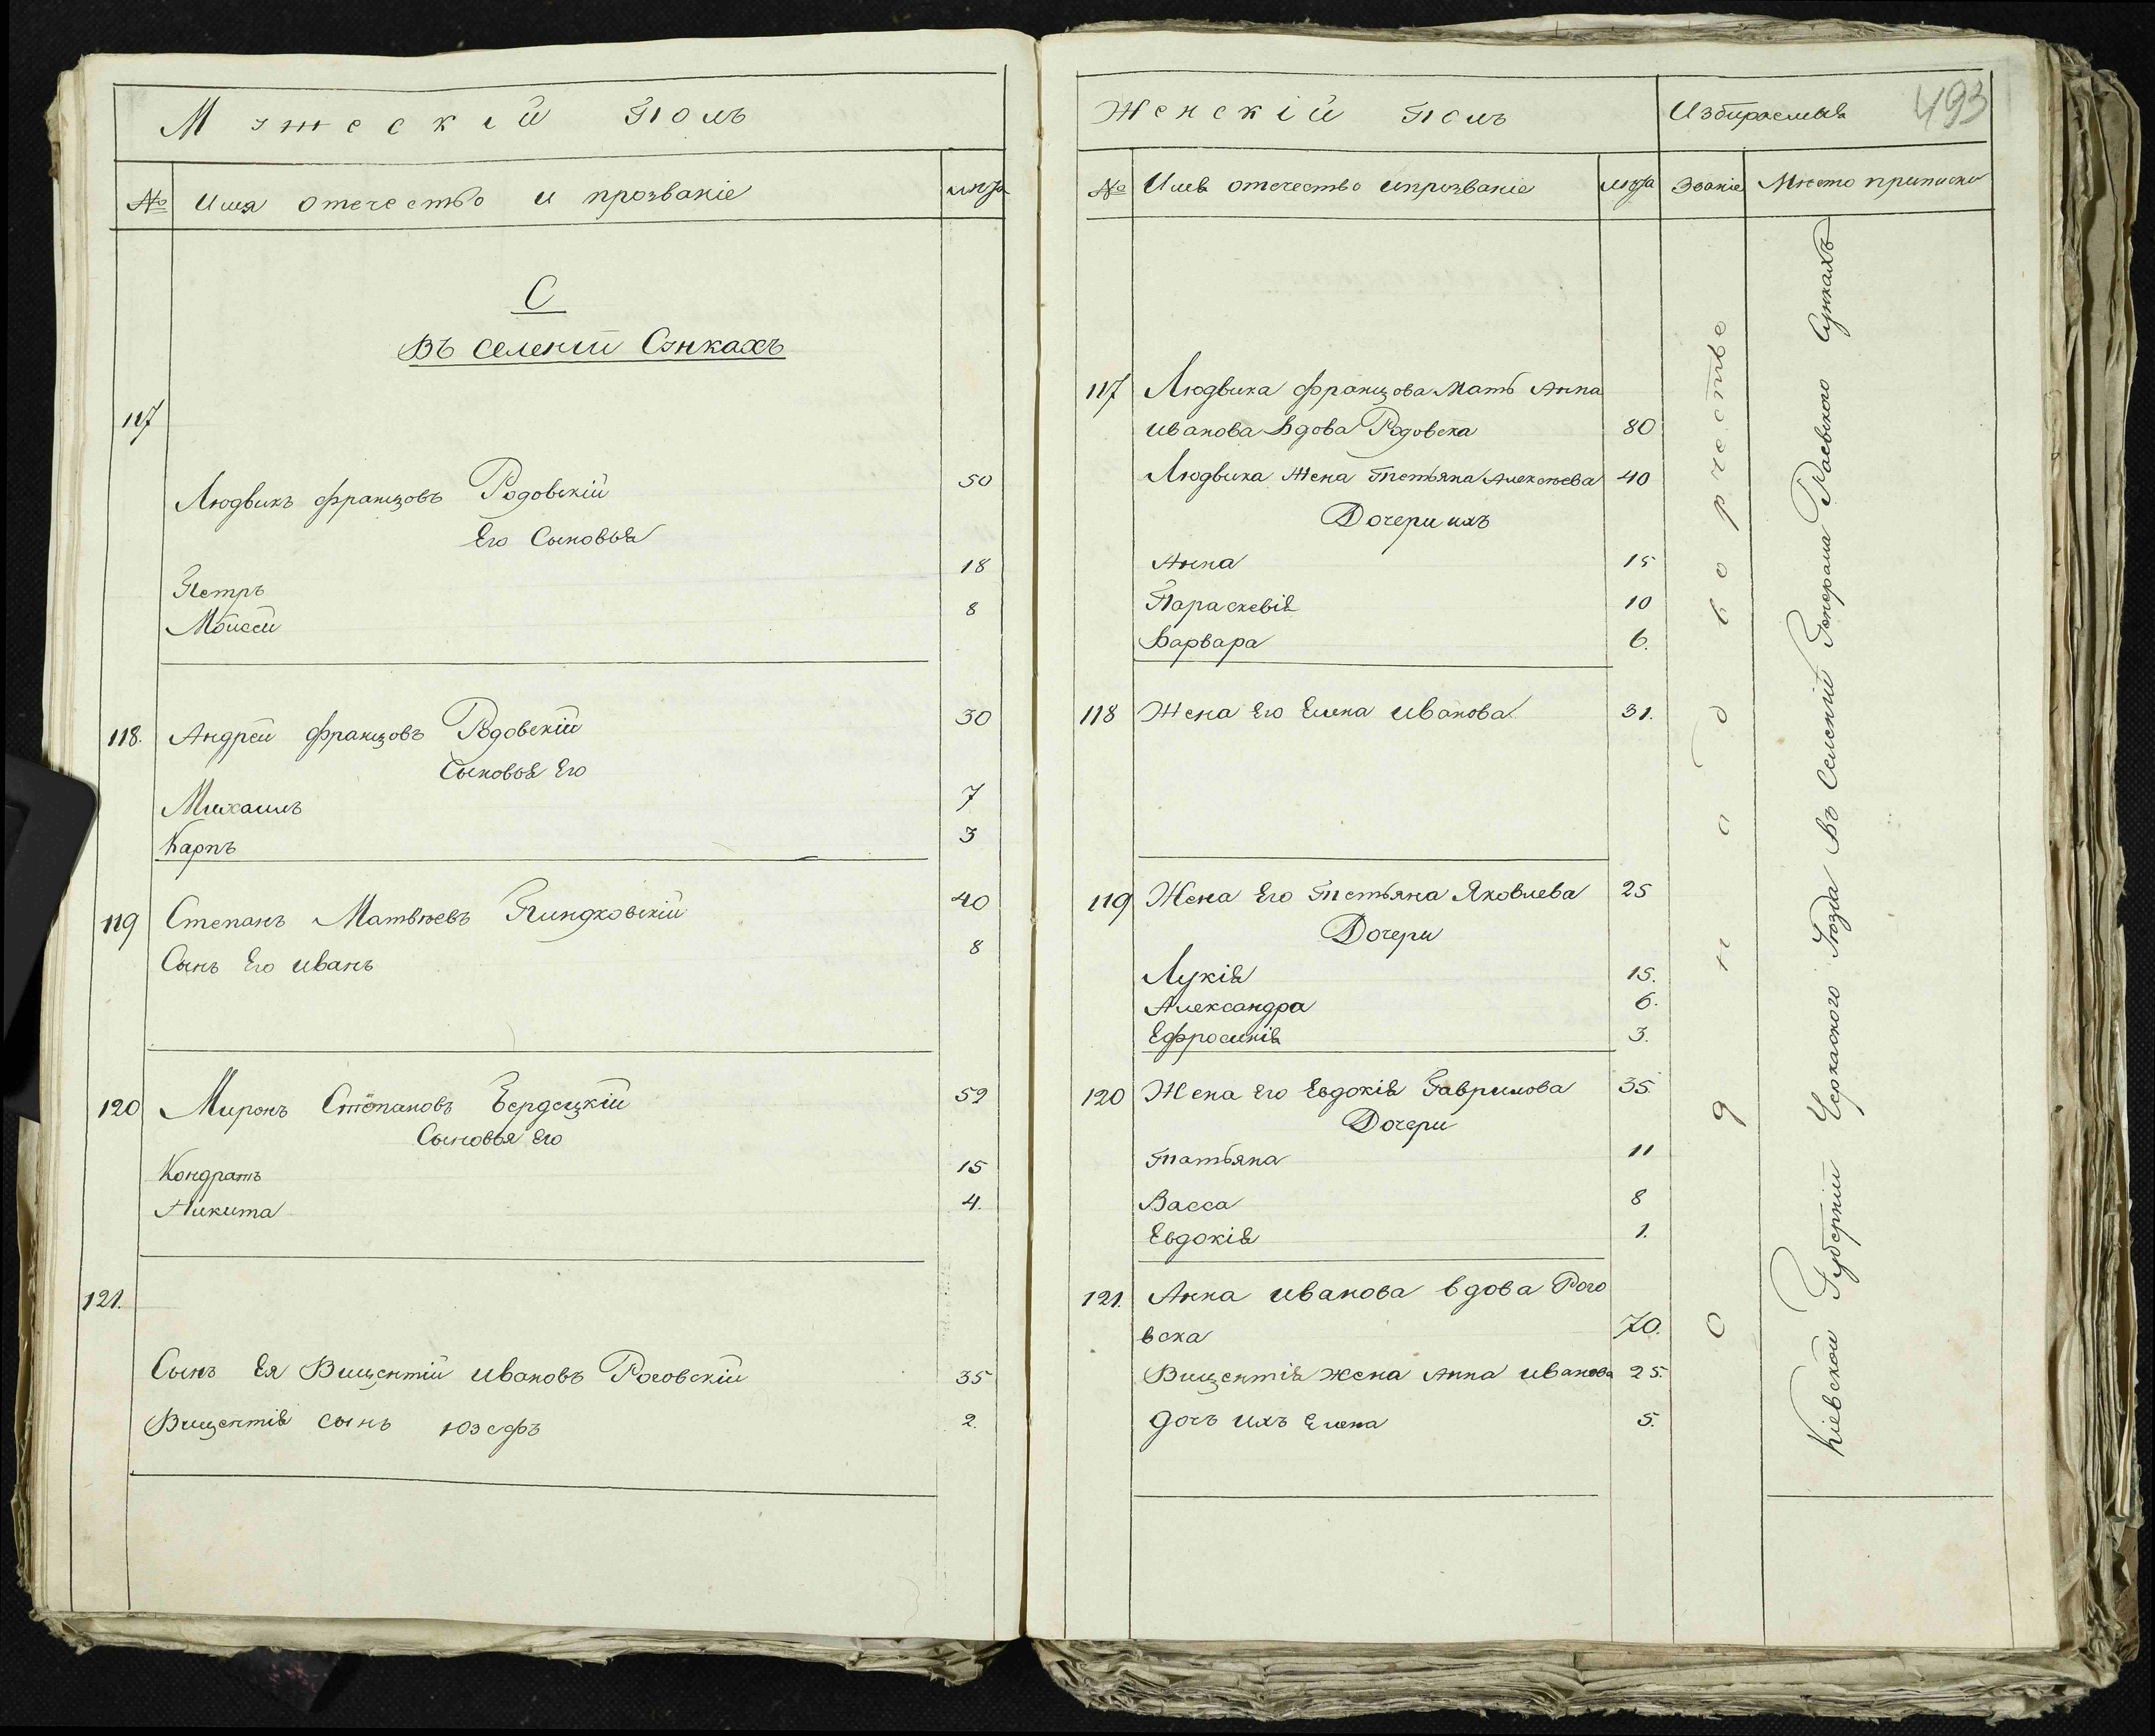 Мужескій Полъ
№ Имя отечество и прозваніе лѣта
С
Въ селеніи Сункахъ
117
Людвикъ Францовъ Родовскій 50
Его Сыновья
Петръ 18
Мойсей 8
118. Андрей Францовъ Родовскій 30
Сыновья Его
Михаилъ 7
Карпъ 3
119 Степанъ Матвѣевъ 40
Сынъ Его Иванъ 8
120 Миронъ Степановъ Бердецкій 59
Сыновья Его
Кондратъ 15
Никита 4.
121.
Сынъ Ея Вицентій Ивановъ Роговскій 35
Вицентія сынъ Юзефъ 2.
Женскій Полъ Избираемыя 493
№ Имя отечество и прозваніе лѣта Званіе Мѣсто приписки
117 Людвика Францова Мать Анна
Иванова Вдова Родовска 80
Людвика Жена Тетьяна Алексѣева 40
Дочери ихъ
Анна 15
Параскевія 10
Варвара 6.
118 Жена Его Елена Иванова 31.
119 Жена Его Тетьяна Яковлева 25
Дочери
Лукія 15.
Александра 6.
Ефросинія 3.
120 Жена Его Евдокія Гаврилова 35.
Дочери
Татьяна 11
Васса 8
Евдокія 1.
121. Анна Иванова вдова Рого
вска 70.
Вицентія жена Анна Иванова 25.
дочь ихъ Елена 5.
однодворчество
Кіевской Губерніи Черкаского Уѣзда Въ Селеніи Генерала Раевского Сункахъ